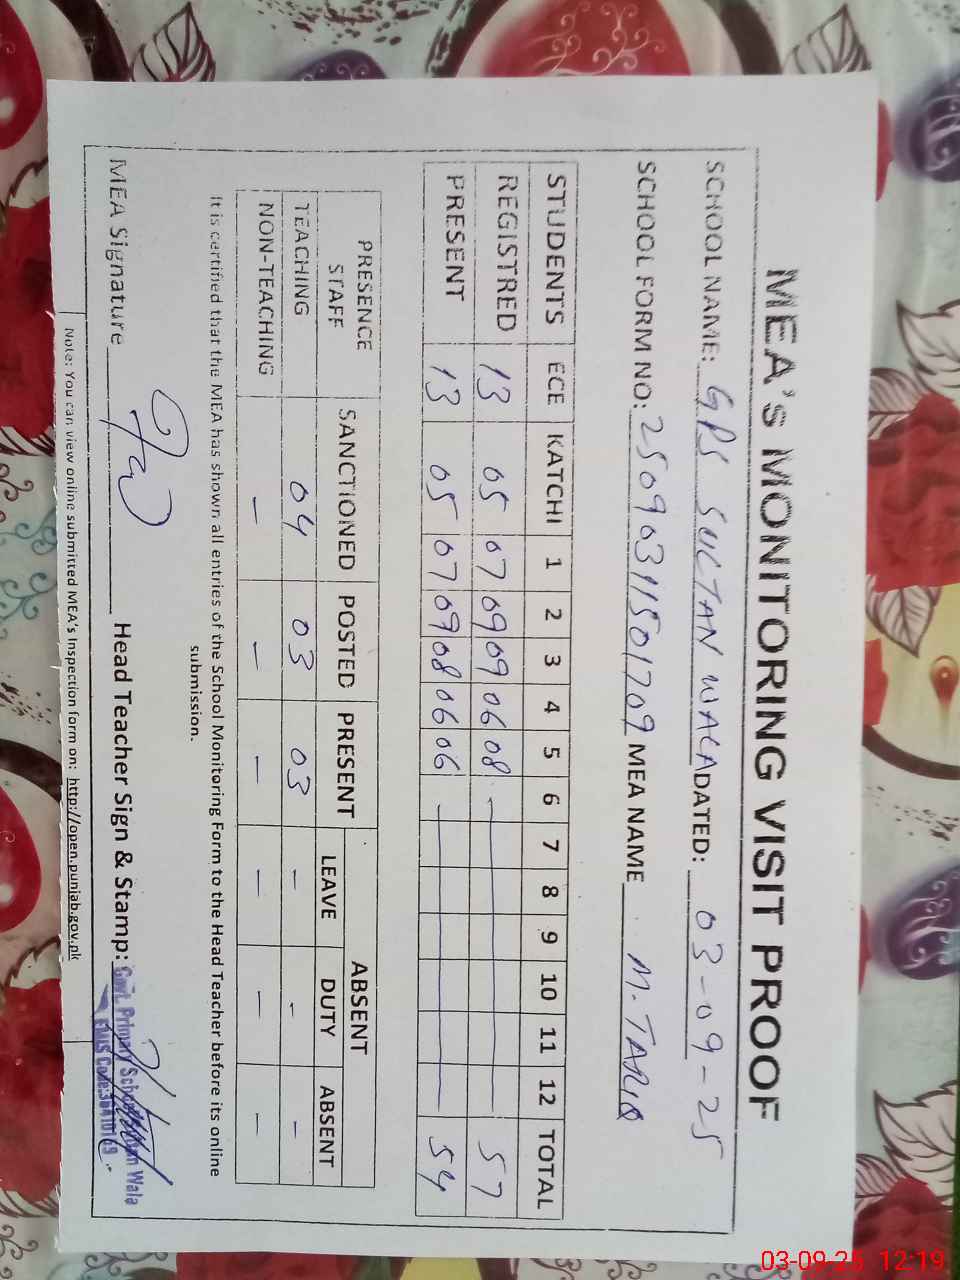 MEA's MONITORING VISIT PROOF
SCHOOL NAME: GPS SULTAN WALA DATED: 03-09-25
SCHOOL FORM NO: 25090311501709 MEA NAME M. TARIQ
STUDENTS ECE KATCHI 1 2 3 4 5 6 7 8 9 10 11 12 TOTAL
REGISTRED 13 05 07 09 09 06 08 - 57
PRESENT 13 05 07 09 08 06 06 - 54
PRESENCE STAFF SANCTIONED POSTED PRESENT ABSENT
LEAVE DUTY ABSENT
TEACHING 04 03 03 - - -
NON-TEACHING - - - - - -
It is certified that the MEA has shown all entries of the School Monitoring Form to the Head Teacher before its online
submission.
MEA Signature Head Teacher Sign & Stamp: Govt. Primary School Wala
EMIS Code:
Note: You can view online submitted MEA's Inspection form on: http://open.punjab.gov.pk
03-09-25 12:19